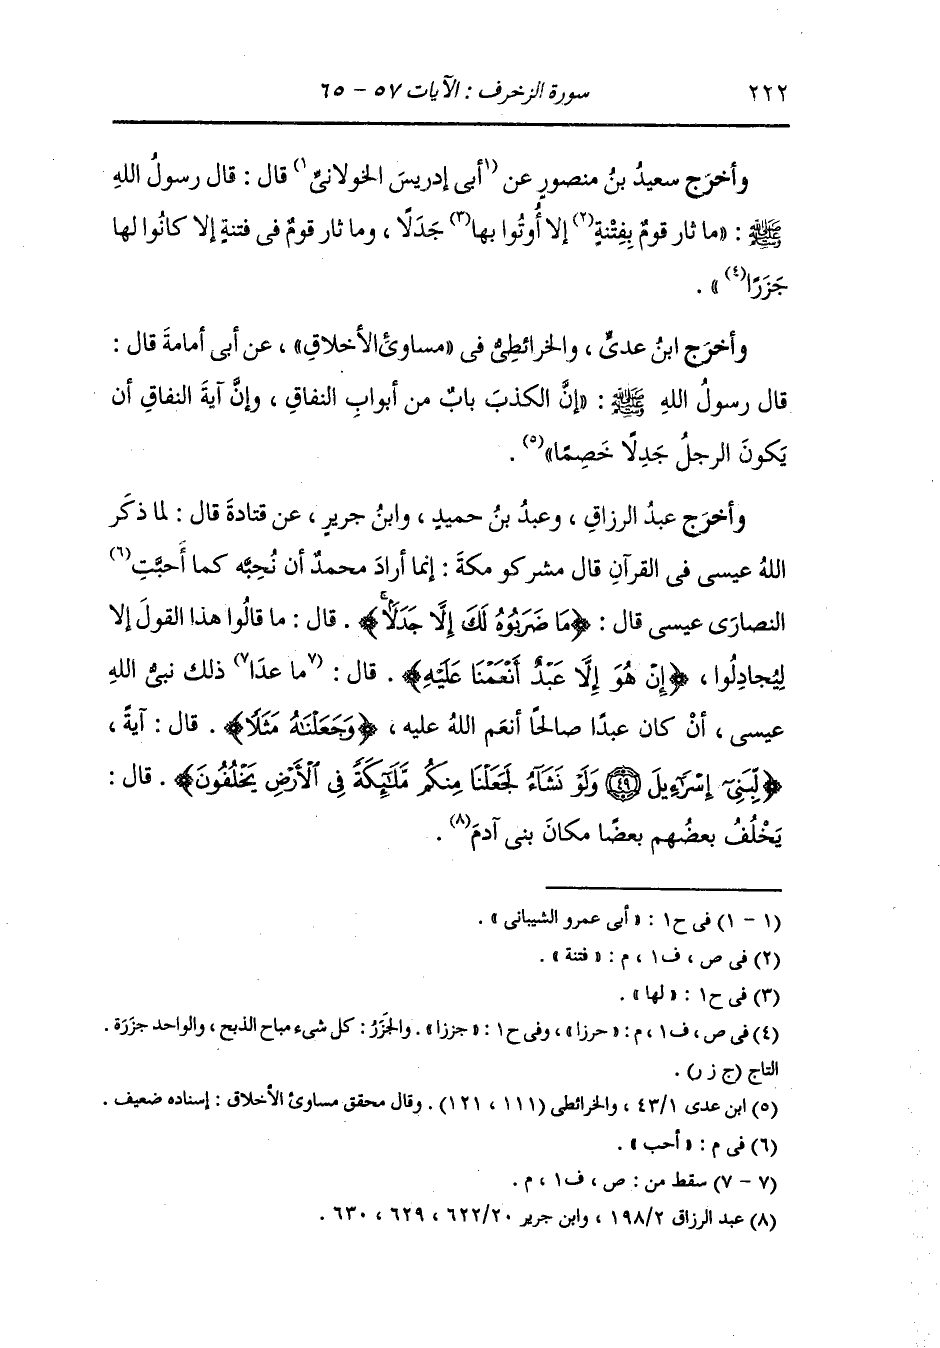 ٢٢٢ سورة الزخرف : الآيات ٥٧ - ٦٥
وأخرَج سعيدُ بنُ منصورٍ عن (١أبى إدريسَ الخولانىِّ١) قال : قال رسولُ اللهِ
ﷺ : «ما ثار قومٌ بِفِتْنةٍ(٢) إلا أُوتُوا بها(٣) جَدَلًا ، وما ثار قومٌ فى فتنةٍ إلا كانُوا لها
جَزَرًا(٤)» .
وأخرَج ابنُ عدىٍّ ، والخرائطِىُّ فى «مساوئَ الأخلاقِ» ، عن أبى أمامةَ قال :
قال رسولُ اللهِ ﷺ : «إنَّ الكذبَ بابٌ من أبوابِ النفاقِ ، وإنَّ آيةَ النفاقِ أن
يَكونَ الرجلُ جَدِلًا خَصِمًا»(٥) .
وأخرَج عبدُ الرزاقِ ، وعبدُ بنُ حميدٍ ، وابنُ جريرٍ ، عن قتادةَ قال : لما ذكَر
اللهُ عيسى فى القرآنِ قال مشركو مكةَ : إنما أرادَ محمدٌ أن نُحِبَّه كما أَحبَّتِ(٦)
النصارَى عيسى قال : ﴿مَا ضَرَبُوهُ لَكَ إِلَّا جَدَلًاۚ﴾ . قال : ما قالُوا هذا القولَ إلا
لِيُجادِلُوا ، ﴿إِنْ هُوَ إِلَّا عَبْدٌ أَنْعَمْنَا عَلَيْهِ﴾ . قال : (٧ما عدَا٧) ذلك نبىُّ اللهِ
عيسى ، أنْ كان عبدًا صالحًا أنعَم اللهُ عليه ، ﴿وَجَعَلْنَـٰهُ مَثَلًا﴾ . قال : آيةً ،
﴿لِّبَنِىٓ إِسْرَٰٓءِيلَ ٥٩ وَلَوْ نَشَآءُ لَجَعَلْنَا مِنكُم مَّلَـٰٓئِكَةً فِى ٱلْأَرْضِ يَخْلُفُونَ﴾ . قال :
يَخْلُفُ بعضُهم بعضًا مكانَ بنى آدمَ(٨) .
(١ - ١) فى ح١ : «أبى عمرو الشيبانى» .
(٢) فى ص ، ف١ ، م : «فتنة» .
(٣) فى ح١ : «لها» .
(٤) فى ص ، ف١ ، م : «حرزا» ، وفى ح١ : «جززا» . والجَزَرُ : كل شىء مباح الذبح ، والواحد جزَرَة .
التاج (ج ز ر) .
(٥) ابن عدى ٤٣/١ ، والخرائطى (١١١ ، ١٢١) . وقال محقق مساوئ الأخلاق : إسناده ضعيف .
(٦) فى م : «أحب» .
(٧ - ٧) سقط من : ص ، ف١ ، م .
(٨) عبد الرزاق ١٩٨/٢ ، وابن جرير ٦٢٢/٢٠ ، ٦٢٩ ، ٦٣٠ .